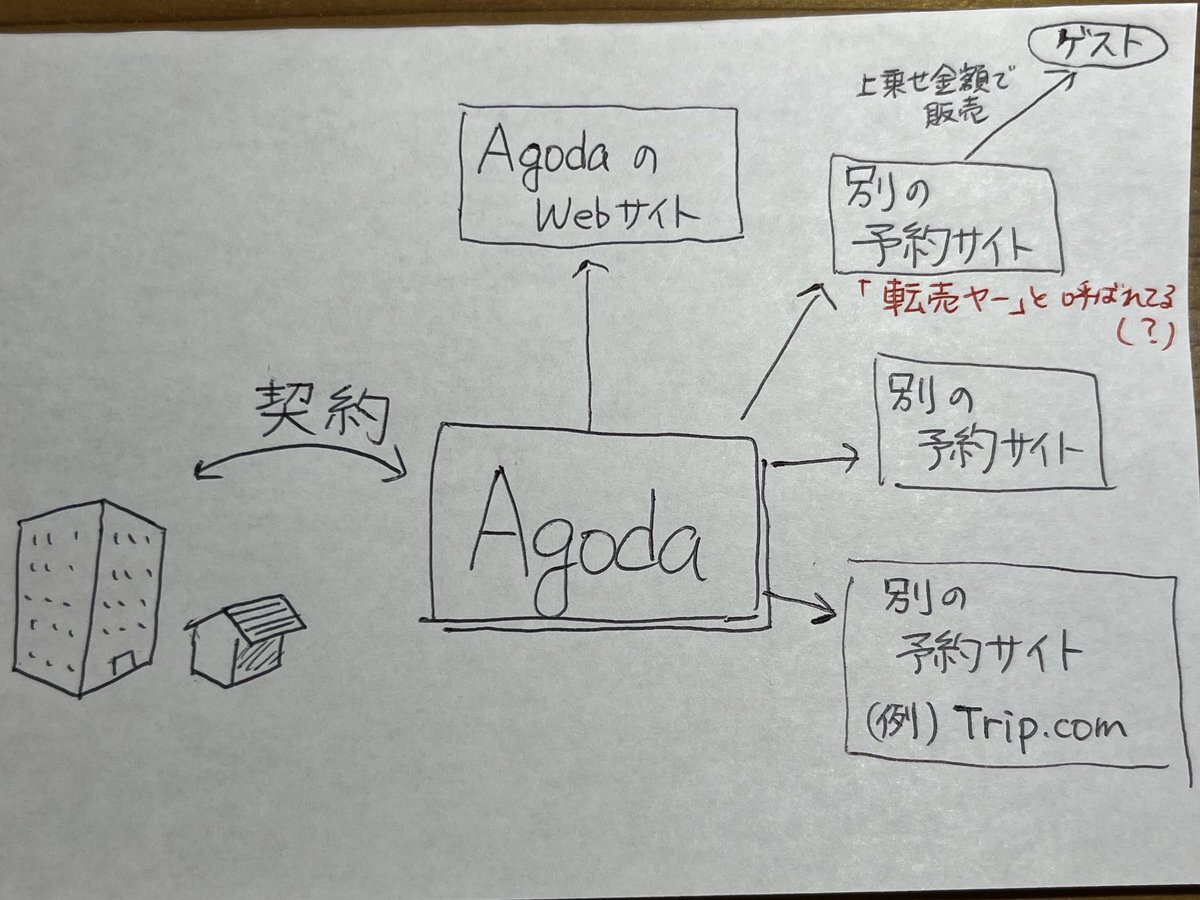 ゲスト
上乗せ金額で
販売
Agoda の
Webサイト
別の
予約サイト
「転売ヤー」と呼ばれてる
(?)
契約
別の
予約サイト
Agoda
別の
予約サイト
(例) Trip.com